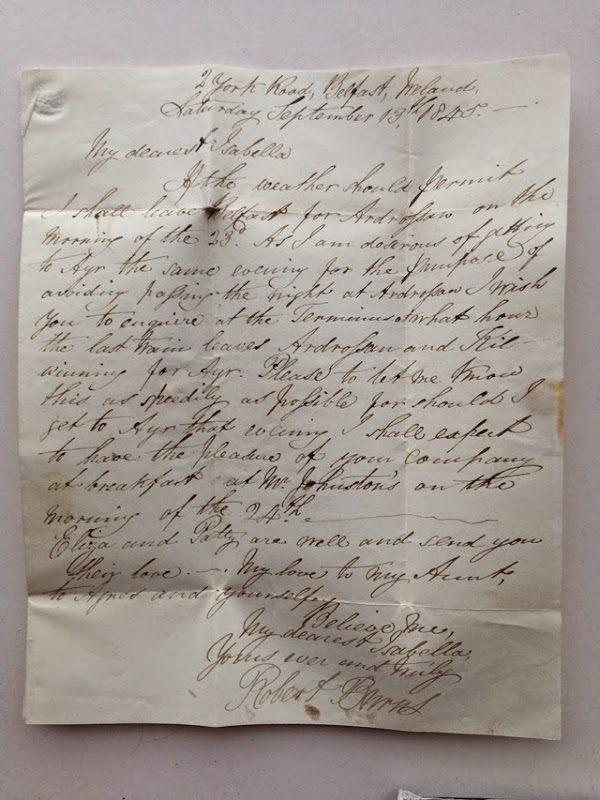 2 York Road, Belfast, Ireland,
Saturday September 13th, 1845. —
My dearest Isabella
If the weather should permit
I shall leave Belfast for Ardrossan on the
morning of the 23d. As I am desirous of getting
to Ayr the same evening for the purpose of
avoiding passing the night at Ardrossan I wish
you to enquire at the Terminus at what hour
the last train leaves Ardrossan and Kil-
winning for Ayr. Please to let me know
this as speedily as possible for should I
get to Ayr that evening I shall expect
to have the pleasure of your company
at breakfast at Mr. Johnston's on the
morning of the 24th.
Eliza and Patty are well and send you
their love. —. My love to my Aunt,
to Agnes and yourself,
Believe me,
My dearest Isabella,
Yours ever and truly
Robert Burns